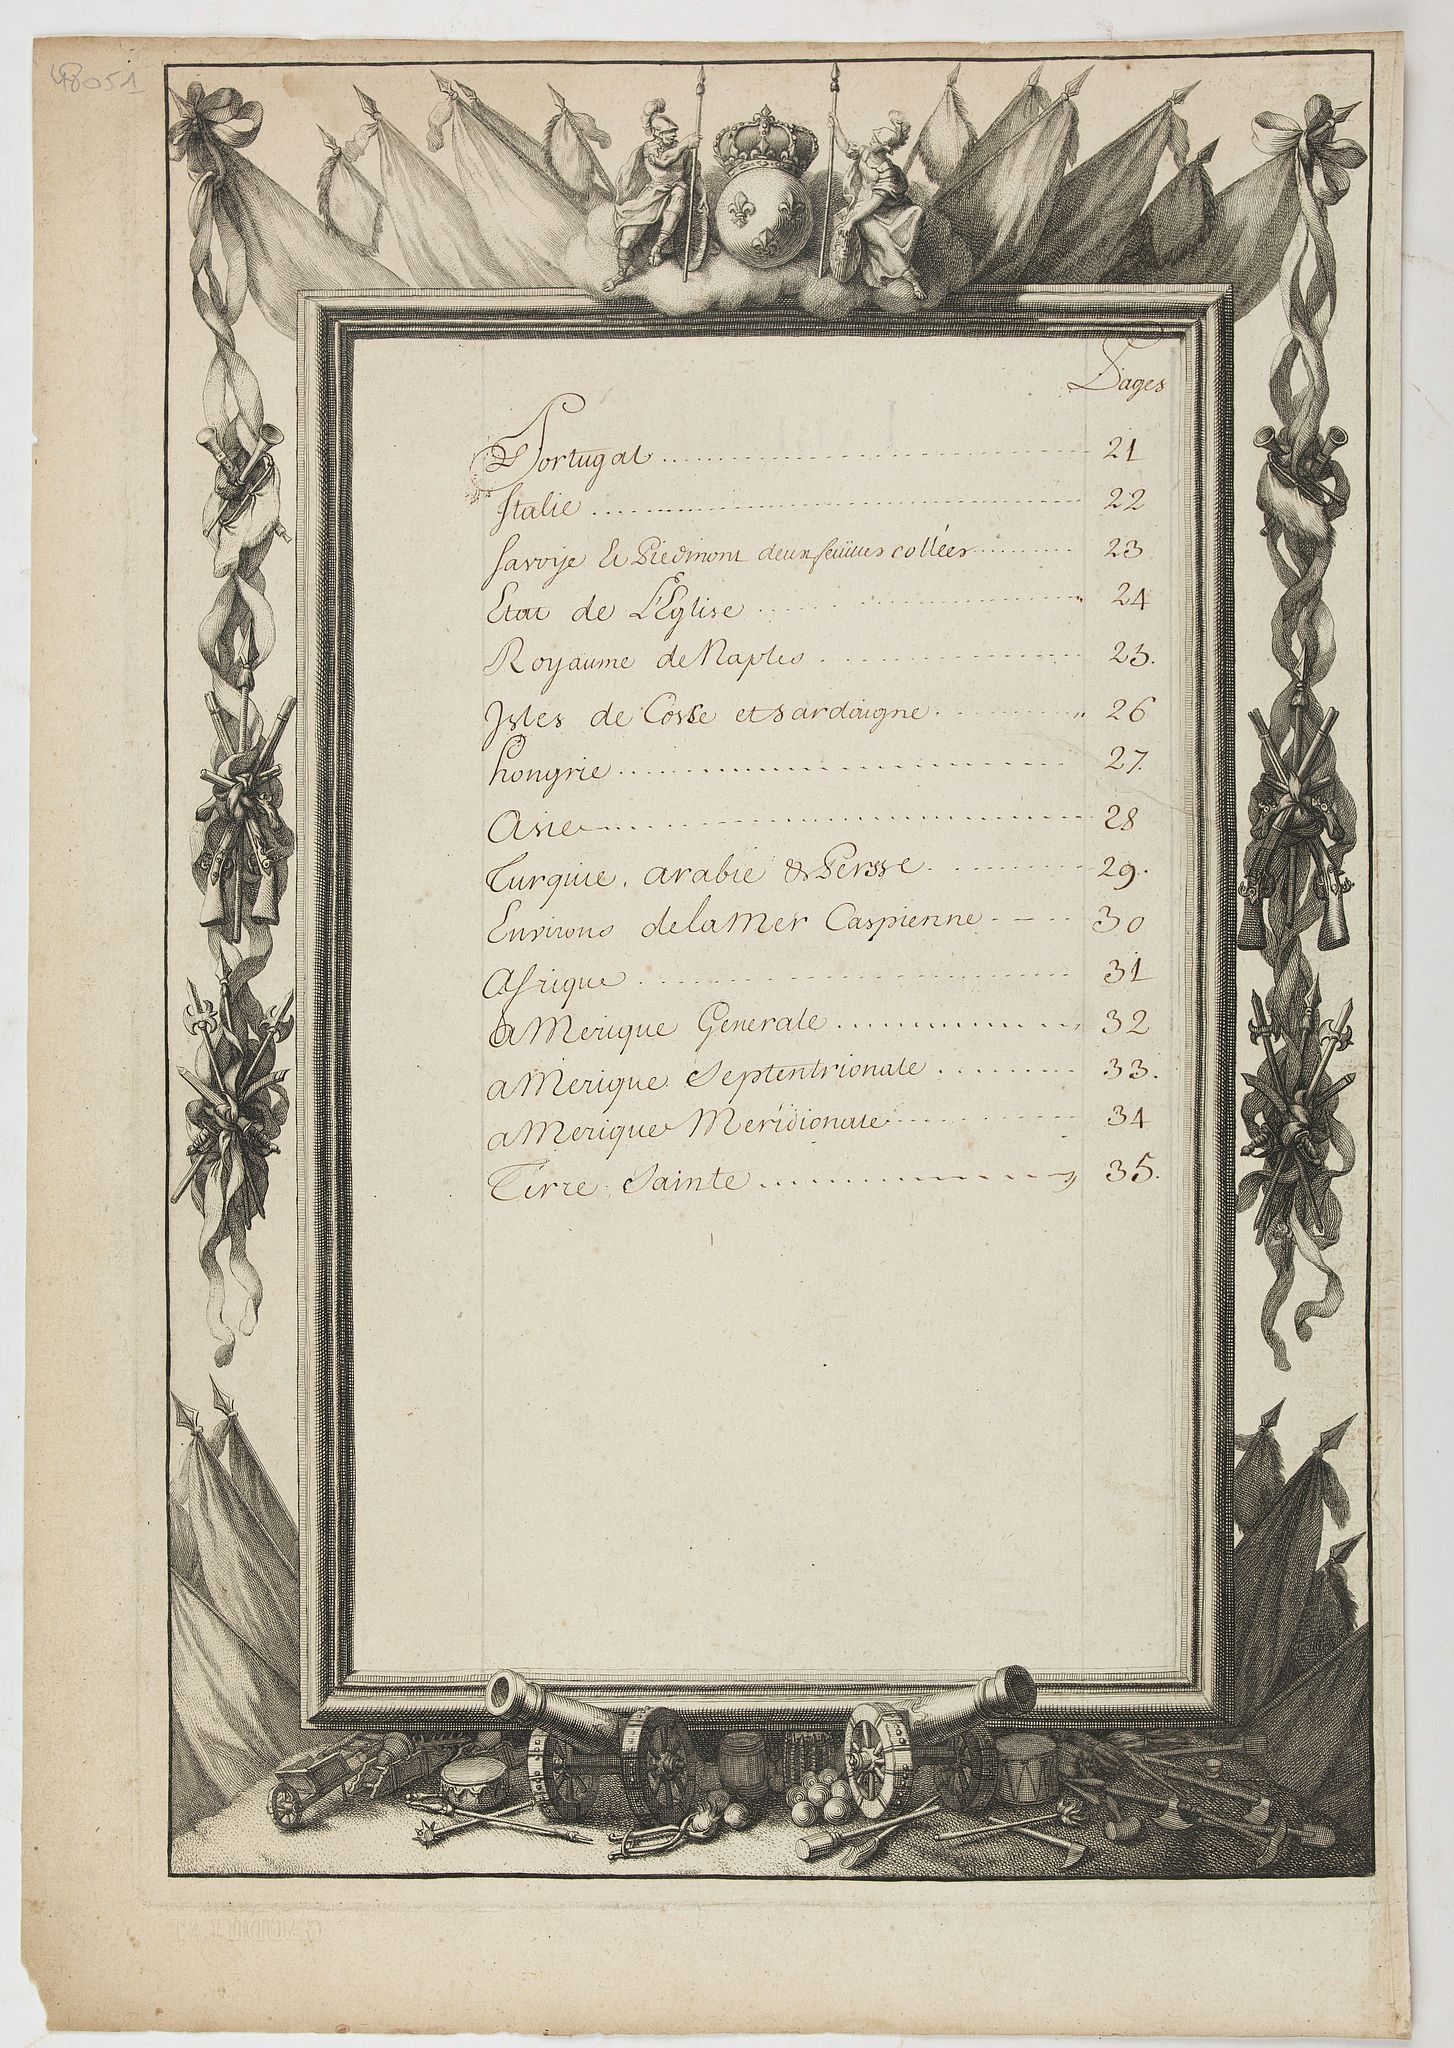 48051
Pages
Portugal 21
Italie 22
Savoye Et Piedmont deux feüilles collées 23
Etat de L'Eglise 24
Royaume de Naples 25.
Isles de Corse et sardaigne 26
hongrie 27.
Asie 28
Turquie, arabie & Persse 29.
Environs de la Mer Caspienne 30
Afrique 31
aMerique Generale 32
aMerique Septentrionale 33.
aMerique Meridionale 34
Terre Sainte 35.